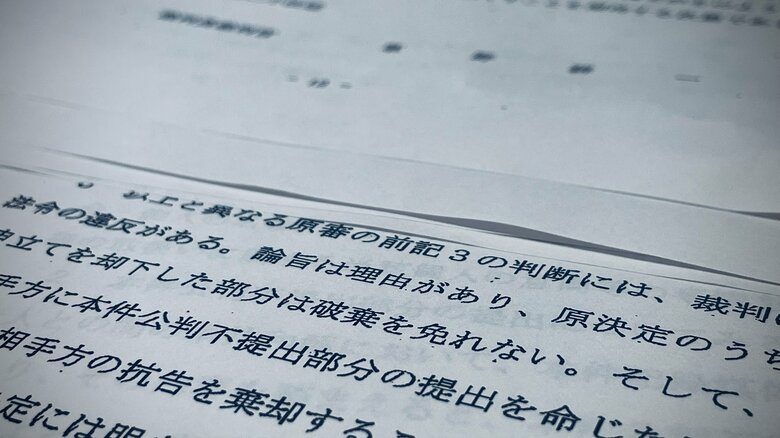 以上と異なる原審の前記３の判断には、裁判
法令の違反がある。論旨は理由があり、原決定のうち
申立てを却下した部分は破棄を免れない。そして、
手方に本件公判不提出部分の提出を命じた
相手方の抗告を棄却する
定には